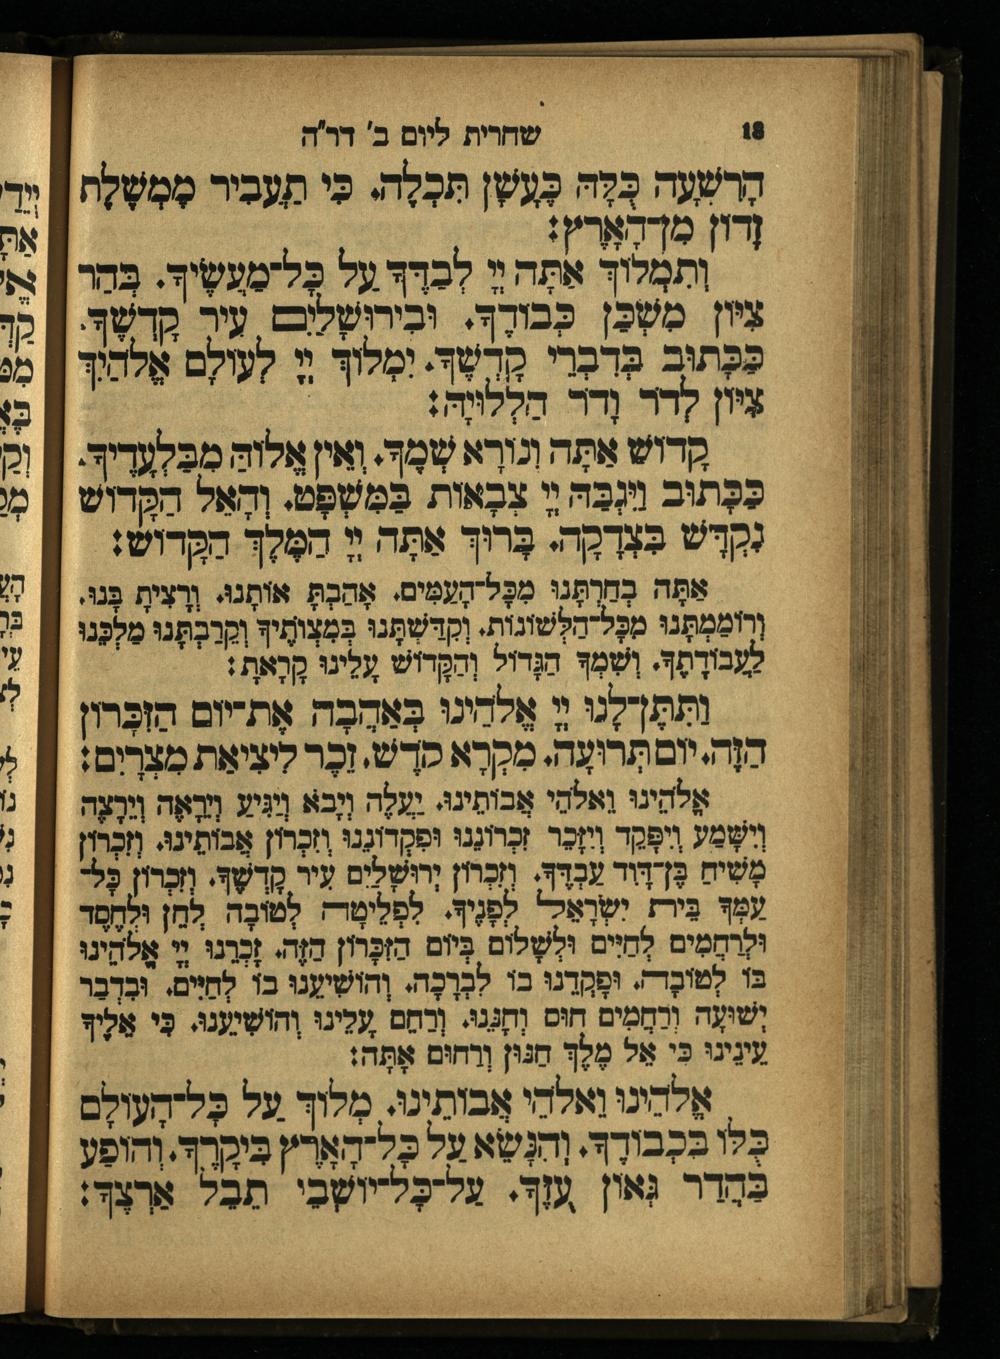 18 שחרית ליום ב' דר"ה
הָרִשְׁעָה כֻּלָּהּ כֶּעָשָׁן תִּכְלֶה. כִּי תַעֲבִיר מֶמְשֶׁלֶת
זָדוֹן מִן־הָאָרֶץ:
וְתִמְלוֹךְ אַתָּה יְיָ לְבַדֶּךָ עַל כָּל־מַעֲשֶׂיךָ. בְּהַר
צִיּוֹן מִשְׁכַּן כְּבוֹדֶךָ. וּבִירוּשָׁלַיִם עִיר קָדְשֶׁךָ.
כַּכָּתוּב בְּדִבְרֵי קָדְשֶׁךָ. יִמְלוֹךְ יְיָ לְעוֹלָם אֱלֹהַיִךְ
צִיּוֹן לְדֹר וָדֹר הַלְלוּיָהּ:
קָדוֹשׁ אַתָּה וְנוֹרָא שְׁמֶךָ. וְאֵין אֱלוֹהַּ מִבַּלְעָדֶיךָ.
כַּכָּתוּב וַיִּגְבַּהּ יְיָ צְבָאוֹת בַּמִּשְׁפָּט. וְהָאֵל הַקָּדוֹשׁ
נִקְדָּשׁ בִּצְדָקָה. בָּרוּךְ אַתָּה יְיָ הַמֶּלֶךְ הַקָּדוֹשׁ:
אַתָּה בְחַרְתָּנוּ מִכָּל־הָעַמִּים. אָהַבְתָּ אוֹתָנוּ. וְרָצִיתָ בָּנוּ.
וְרוֹמַמְתָּנוּ מִכָּל־הַלְּשׁוֹנוֹת. וְקִדַּשְׁתָּנוּ בְּמִצְוֹתֶיךָ וְקֵרַבְתָּנוּ מַלְכֵּנוּ
לַעֲבוֹדָתֶךָ. וְשִׁמְךָ הַגָּדוֹל וְהַקָּדוֹשׁ עָלֵינוּ קָרָאתָ:
וַתִּתֶּן־לָנוּ יְיָ אֱלֹהֵינוּ בְּאַהֲבָה אֶת־יוֹם הַזִּכָּרוֹן
הַזֶּה. יוֹם תְּרוּעָה. מִקְרָא קֹדֶשׁ. זֵכֶר לִיצִיאַת מִצְרָיִם:
אֱלֹהֵינוּ וֵאלֹהֵי אֲבוֹתֵינוּ. יַעֲלֶה וְיָבֹא וְיַגִּיעַ וְיֵרָאֶה וְיֵרָצֶה
וְיִשָּׁמַע וְיִפָּקֵד וְיִזָּכֵר זִכְרוֹנֵנוּ וּפִקְדוֹנֵנוּ וְזִכְרוֹן אֲבוֹתֵינוּ. וְזִכְרוֹן
מָשִׁיחַ בֶּן־דָּוִד עַבְדֶּךָ. וְזִכְרוֹן יְרוּשָׁלַיִם עִיר קָדְשֶׁךָ. וְזִכְרוֹן כָּל־
עַמְּךָ בֵּית יִשְׂרָאֵל לְפָנֶיךָ. לִפְלֵיטָה לְטוֹבָה לְחֵן וּלְחֶסֶד
וּלְרַחֲמִים לְחַיִּים וּלְשָׁלוֹם בְּיוֹם הַזִּכָּרוֹן הַזֶּה. זָכְרֵנוּ יְיָ אֱלֹהֵינוּ
בּוֹ לְטוֹבָה. וּפָקְדֵנוּ בוֹ לִבְרָכָה. וְהוֹשִׁיעֵנוּ בוֹ לְחַיִּים. וּבִדְבַר
יְשׁוּעָה וְרַחֲמִים חוּס וְחָנֵּנוּ. וְרַחֵם עָלֵינוּ וְהוֹשִׁיעֵנוּ. כִּי אֵלֶיךָ
עֵינֵינוּ כִּי אֵל מֶלֶךְ חַנּוּן וְרַחוּם אָתָּה:
אֱלֹהֵינוּ וֵאלֹהֵי אֲבוֹתֵינוּ. מְלוֹךְ עַל כָּל־הָעוֹלָם
כֻּלּוֹ בִּכְבוֹדֶךָ. וְהִנָּשֵׂא עַל כָּל־הָאָרֶץ בִּיקָרֶךָ. וְהוֹפַע
בַּהֲדַר גְּאוֹן עֻזֶּךָ. עַל־כָּל־יוֹשְׁבֵי תֵבֵל אַרְצֶךָ: